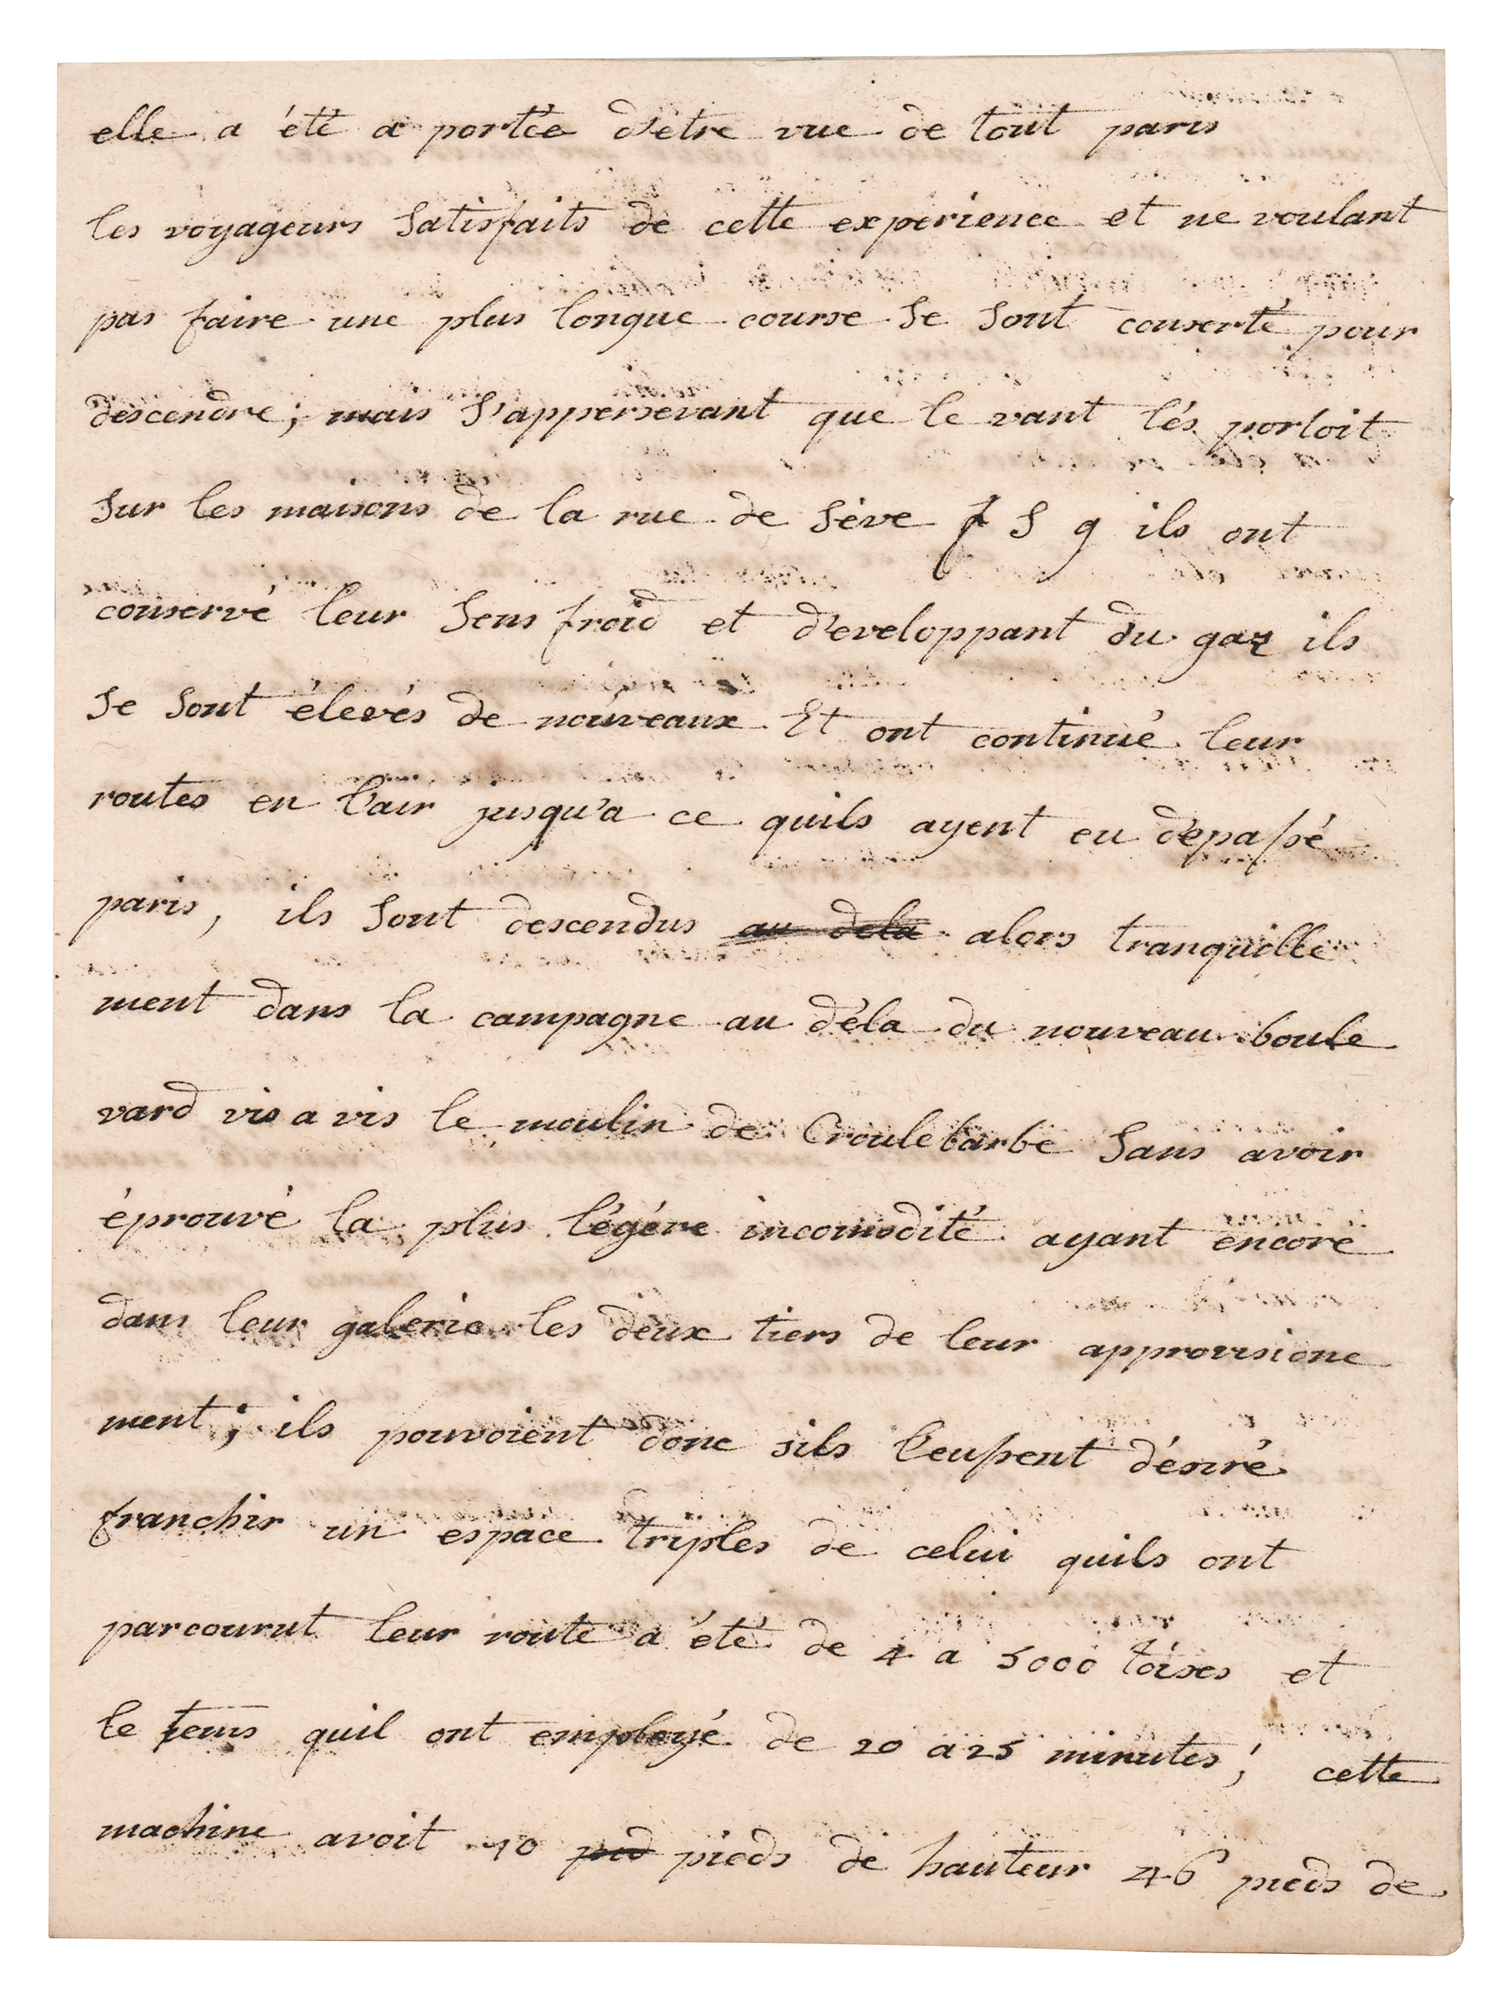 elle a été a portée d'etre vue de tout paris
les voyageurs Satisfaits de cette experience et ne voulant
pas faire une plus longue course Se Sont conserté pour
descendre; mais S'appersevant que le vant lés portoit
Sur les maisons de la rue de Séve f S g ils ont
conservé leur Sens froid et d'eveloppant du gaz ils
Se Sont élevés de nouveaux Et ont continué leur
routes en l'air jusqu'a ce quils ayent eu dépassé
paris, ils Sont descendus au dela alors tranquille
ment dans la campagne au déla du nouveau boule
vard vis a vis le moulin de Croulebarbe Sans avoir
éprouvé la plus légére incomodité ayant encore
dans leur galerie les deux tiers de leur approvisione
ment; ils pouvoient donc sils l'eussent désiré
franchir un espace triples de celui quils ont
parcourut leur route a été de 4 a 5000 toises et
le tems quil ont employé de 20 a 25 minutes; cette
machine avoit 70 pied pieds de hauteur 46 pieds de